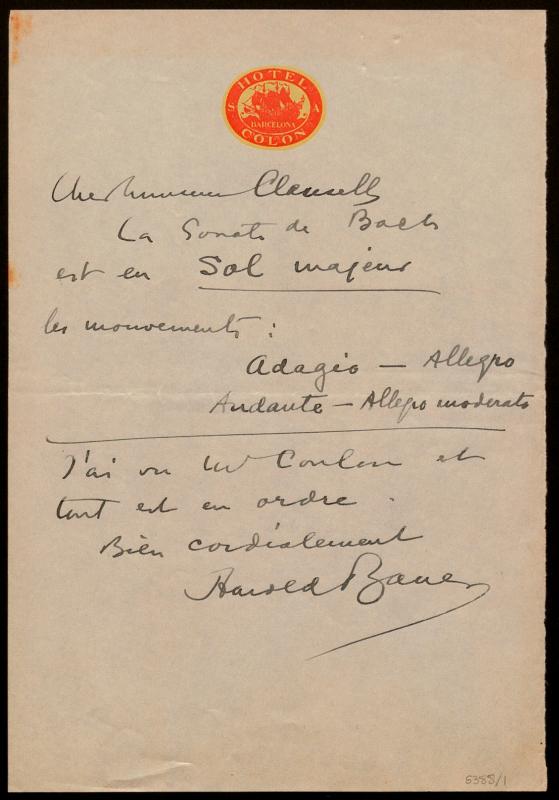 HOTEL
S. A.
BARCELONA
COLON
Cher monsieur Clausells
La Sonate de Bach
est en Sol majeur
les mouvements :
Adagio — Allegro
Andante — Allegro moderato
J'ai vu Mr Coulon et
tout est en ordre.
Bien cordialement
Harold Bauer
5388/1